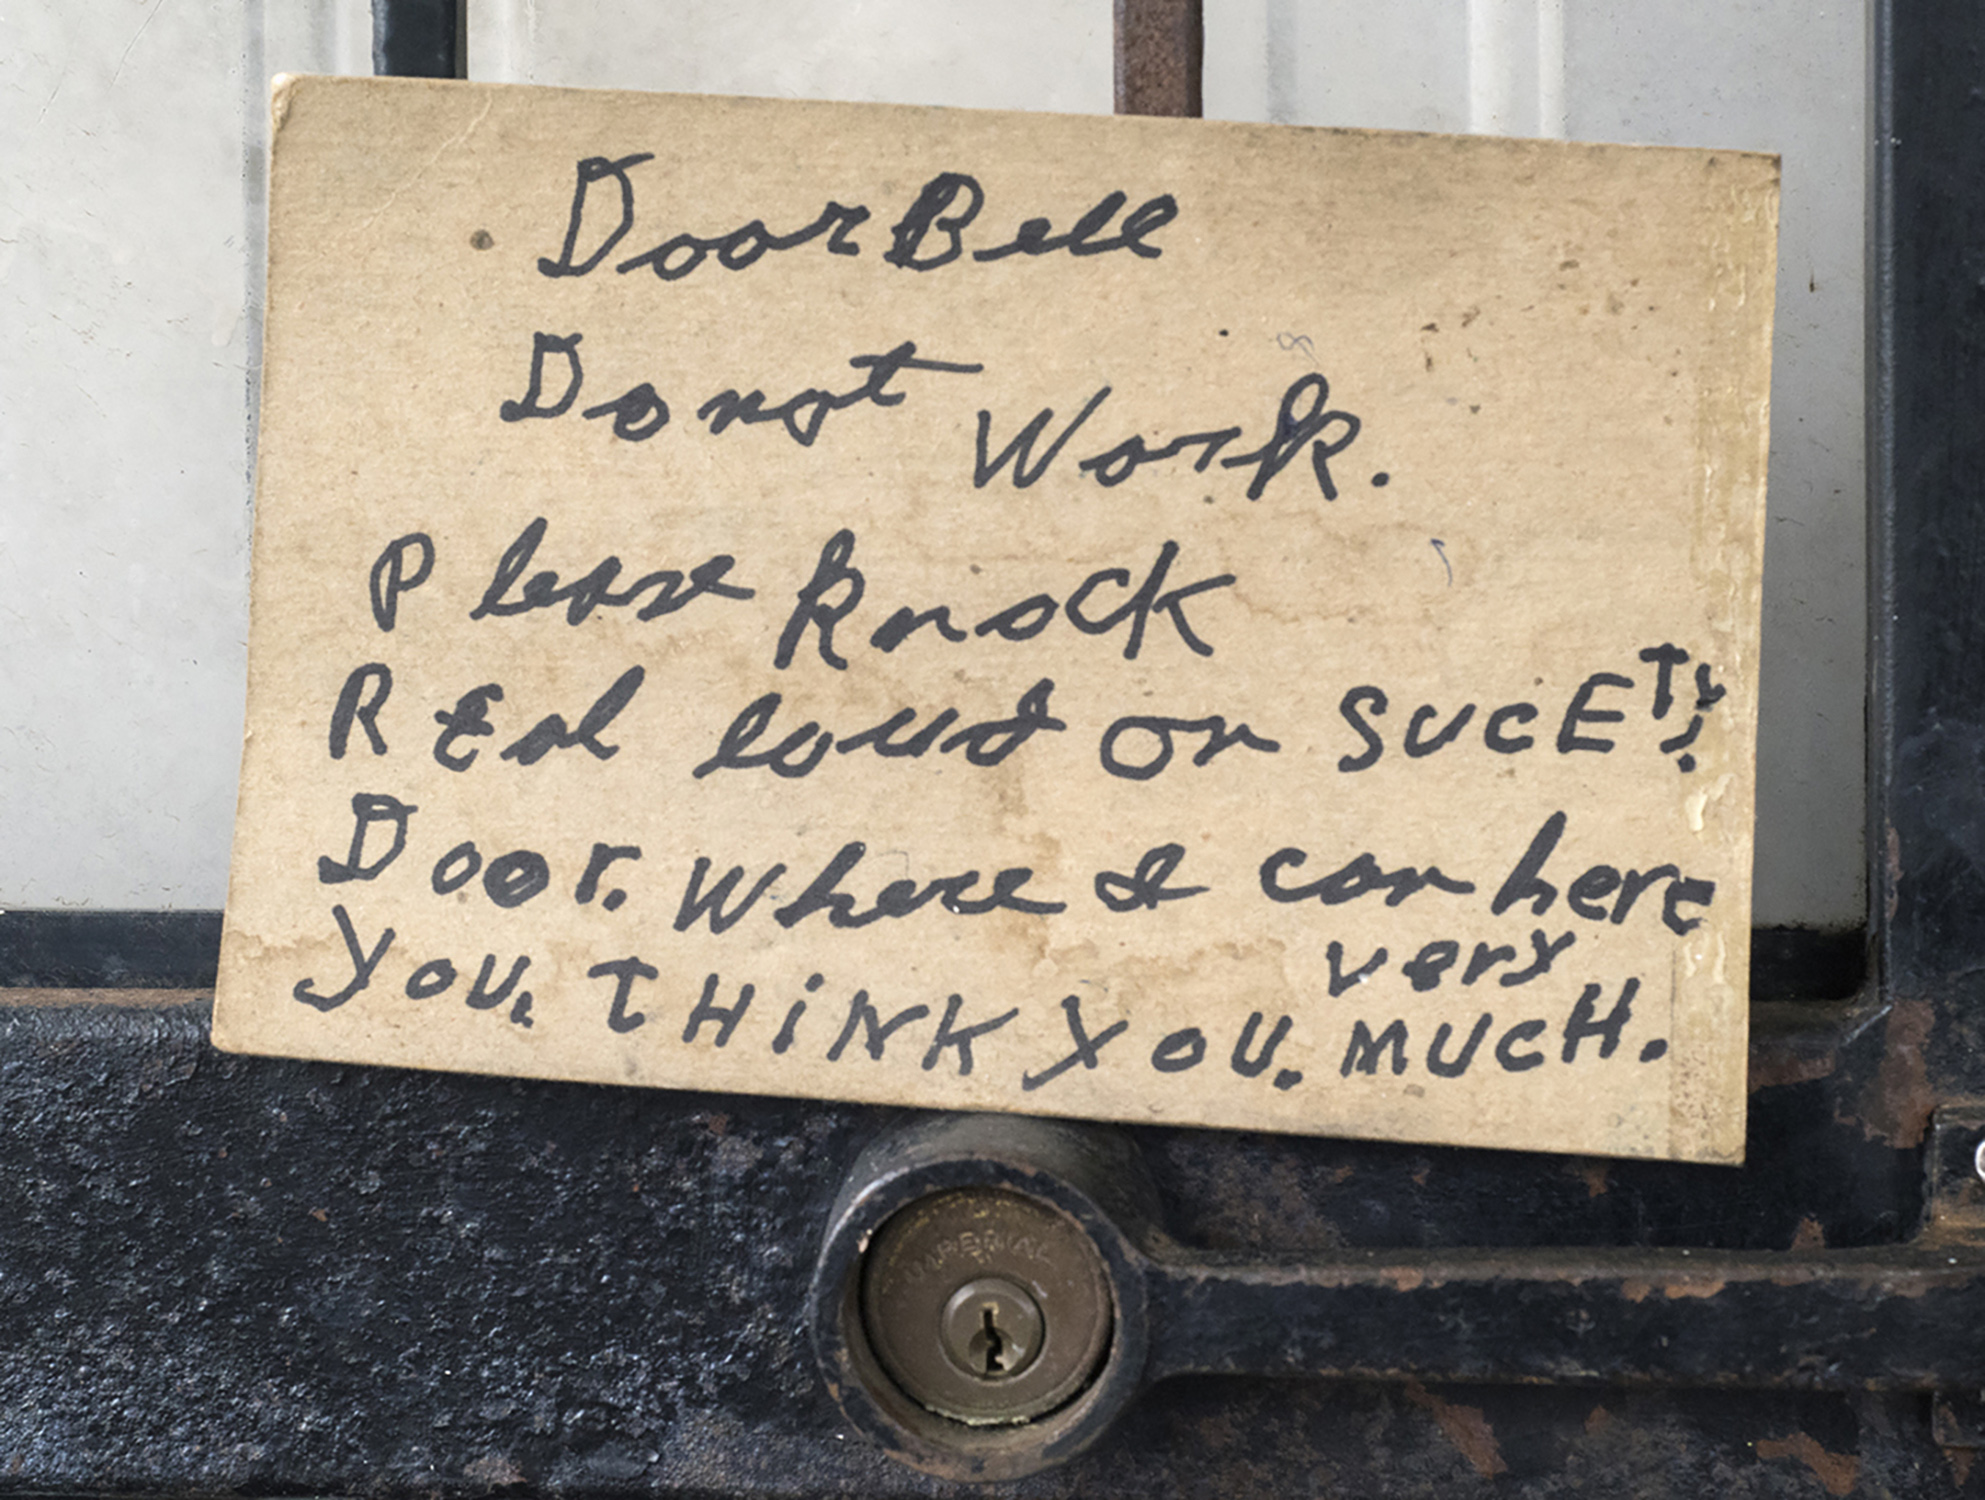 DoorBell
Do not Work.
Please knock
REal loud on SUCETY
Door. Where I can here
you. THiNK YOU. very MUCH.
IMPERIAL